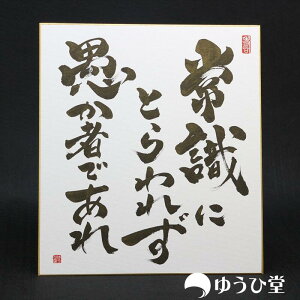 常識に
とらわれず
愚か者であれ
ゆうひ堂